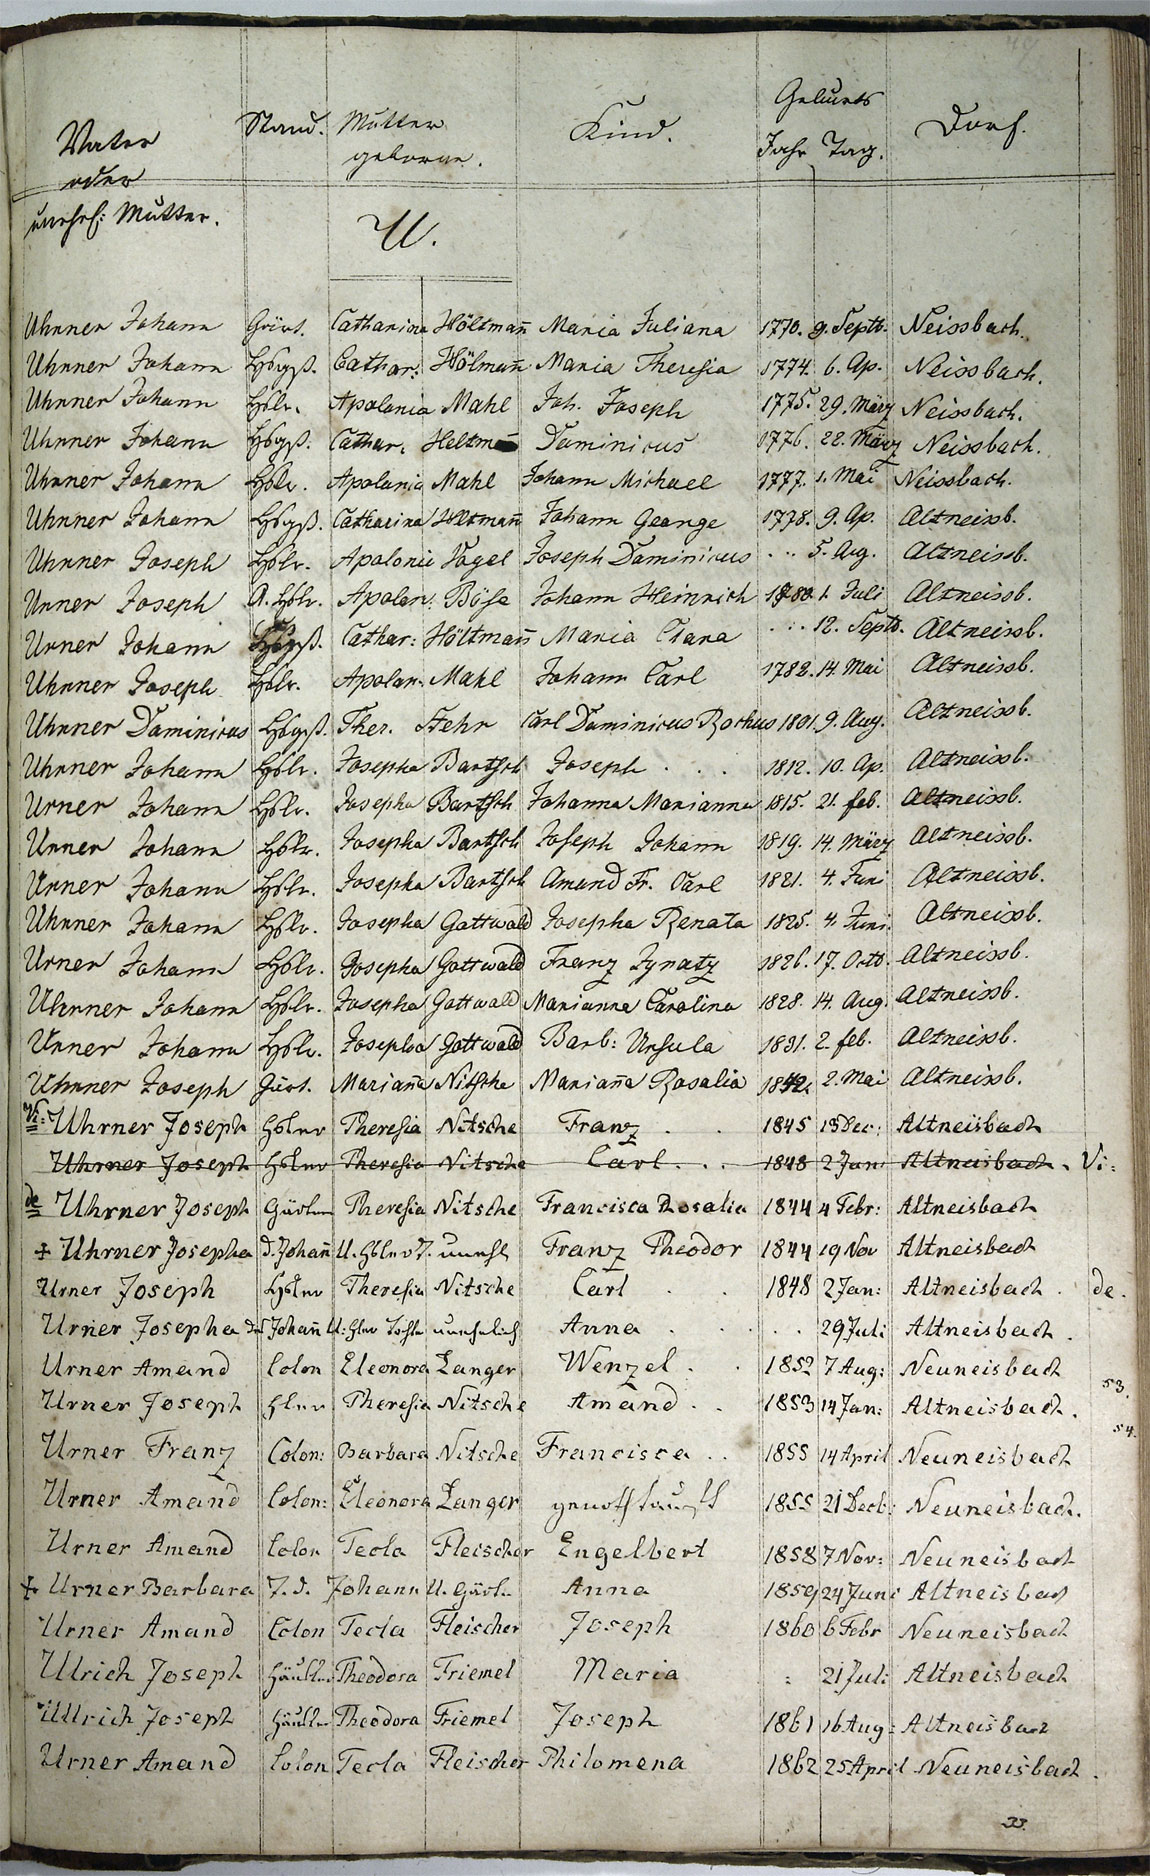 Vater
oder
unehel: Mutter.
Stand.
Mutter
geborne.
Kind.
Geburts
Jahr Tag.
Dorf.
U.
Uhrner Johann Gärt. Catharina Höltmañ Maria Juliana 1770. 9. Septb. Neissbach.
Uhrner Johann Hbgß. Cathar: Hölmañ Maria Theresia 1774. 6. Ap. Neissbach.
Uhrner Johann Hslr. Apolonia Mahl Joh. Joseph 1775. 29. März Neissbach.
Uhrner Johann Hbgß. Cathar: Dominicus 1776. 22. März Neissbach.
Uhrner Johann Hslr. Apolonia Mahl Johann Michael 1777. 1. Mai Neissbach.
Uhrner Johann Hbgß. Catharina Höltmañ Johann George 1778. 9. Ap. Altneissb.
Uhrner Joseph Hslr. Apolonia Vogel Joseph Dominicus ... 5. Aug. Altneissb.
Urner Joseph A. Hslr. Apolon: Böse Johann Heinrich 1780. 1. Juli Altneissb.
Urner Johann Hbgß. Cathar: Höltmañ Maria Clara ... 12. Septb. Altneissb.
Uhrner Joseph Hslr. Apolon: Mahl Johann Carl 1782. 14. Mai Altneissb.
Uhrner Dominicus Hbgß. Ther. Stehr Carl Dominicus Rochus 1801. 9. Aug. Altneissb.
Uhrner Johann Hslr. Josepha Bartsch Joseph . . . 1812. 10. Ap. Altneissb.
Urner Johann Hslr. Josepha Bartsch Johanna Marianna 1815. 21. feb. Altneissb.
Urner Johann Hslr. Josepha Bartsch Joseph Johann 1819. 14. März Altneissb.
Urner Johann Hslr. Josepha Bartsch Amand Fr. Carl 1821. 4. Juni Altneissb.
Uhrner Johann Hslr. Josepha Gottwald Josepha Renata 1825. 4. Juni. Altneissb.
Urner Johann Hslr. Josepha Gottwald Franz Ignatz 1826. 17. Octb. Altneissb.
Uhrner Johann Hslr. Josepha Gottwald Marianna Carolina 1828. 14. Aug. Altneissb.
Urner Johann Hslr. Josepha Gottwald Barb: Ursula 1831. 2. feb. Altneissb.
Uhrner Joseph Gärt. Mariaña Nitsche Mariaña Rosalia 1842. 2. Mai Altneissb.
Vi: Uhrner Joseph Hslner Theresia Nitsche Franz . . 1845 13 Dec: Altneisbach
Uhrner Joseph Hslner Theresia Nitsche Carl . . . 1848 2 Jan: Altneisbach. Vi:
de Uhrner Joseph Gärtner Theresia Nitsche Francisca Rosalia 1844 4 Febr: Altneisbach
+ Uhrner Josepha d. Johañ U. Hslner T. unehl Franz Theodor 1844 19 Nov Altneisbach
Urner Joseph Hslner Theresia Nitsche Carl . . 1848 2 Jan: Altneisbach . de.
Urner Josepha des Johañ U: Hslner Tocht unehelich Anna . . . . 29 Juli Altneisbach.
Urner Amand Colon Eleonora Langer Wenzel . . 1852 7 Aug: Neuneisbach
53.
Urner Joseph Hslner Theresia Nitsche Amand . . 1853 14 Jan: Altneisbach.
54.
Urner Franz Colon: Barbara Nitsche Francisca . . 1855 14 April Neuneisbach
Urner Amand Colon: Eleonora Langer genothtauft 1855 21 Decb: Neuneisbach.
Urner Amand Colon Tecla Fleischer Engelbert 1858 7 Nov: Neuneisbach
+ Urner Barbara T. d. Johann U. Gärtn. Anna 1859 24 Juni Altneisbach
Urner Amand Colon Tecla Fleischer Joseph 1860 6 Febr Neuneisbach
Ulrich Joseph Häusler Theodora Friemel Maria : 21 Juli Altneisbach
Ullrich Joseph Häusler Theodora Friemel Joseph 1861 16 Aug: Altneisbach
Urner Amand Colon Tecla Fleischer Philomena 1862 25 April Neuneisbach.
33.